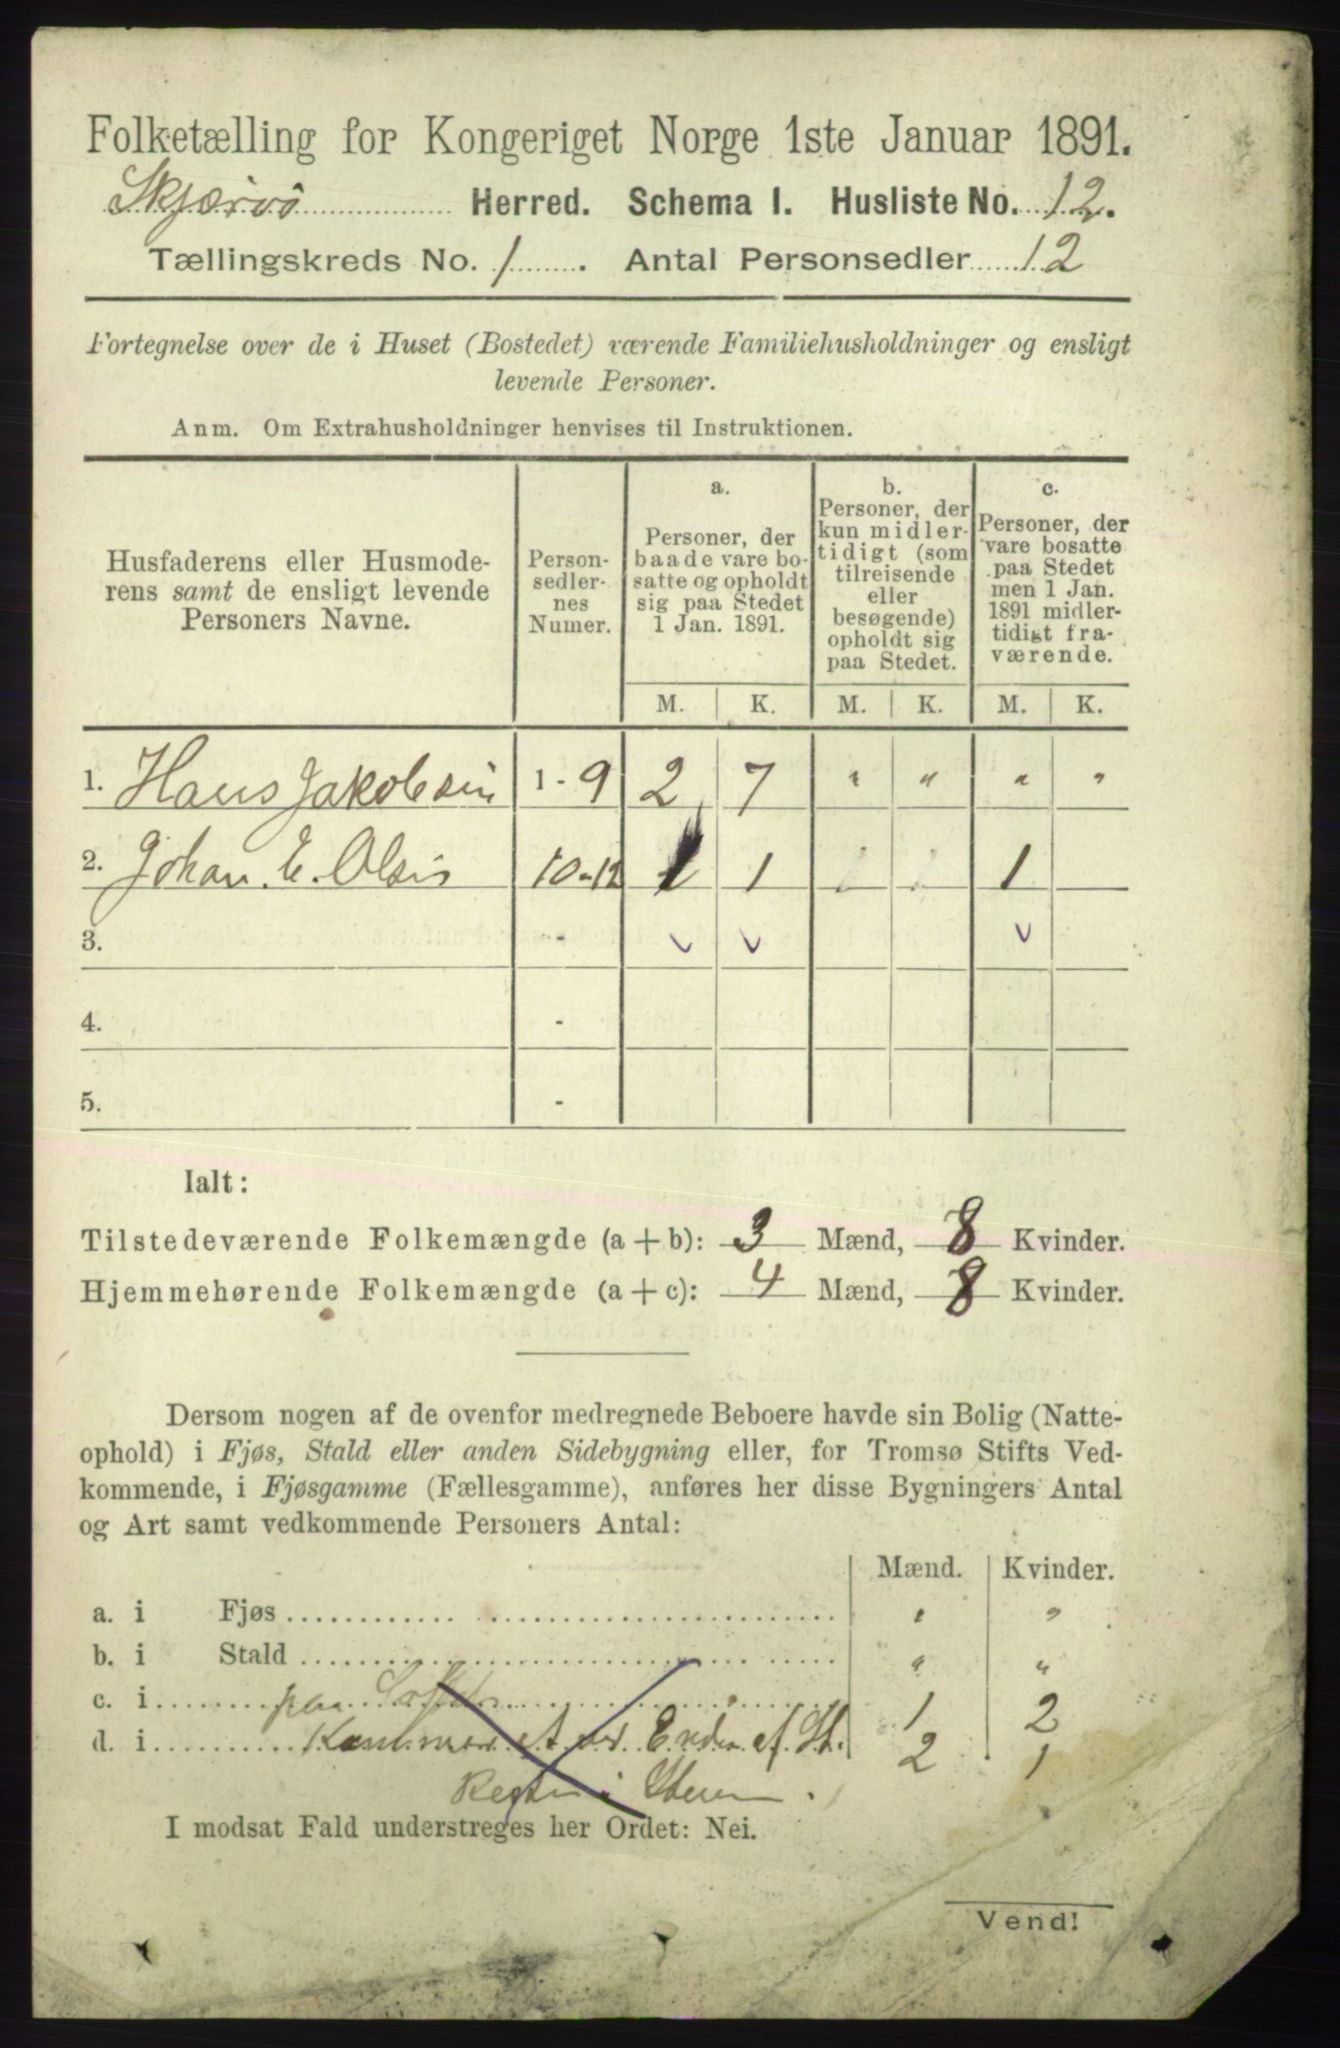 Folketælling for Kongeriget Norge 1ste Januar 1891.
Skjærvö Herred. Schema I. Husliste No. 12.
Tællingskreds No. 1. Antal Personsedler 12
Fortegnelse over de i Huset (Bostedet) værende Familiehusholdninger og ensligt
levende Personer.
Anm. Om Extrahusholdninger henvises til Instruktionen.
Husfaderens eller Husmode-
rens samt de ensligt levende
Personers Navne.
Person-
sedler-
nes
Numer.
a.
Personer, der
baade vare bo-
satte og opholdt
sig paa Stedet
1 Jan. 1891.
b.
Personer, der
kun midler-
tidigt (som
tilreisende
eller
besøgende)
opholdt sig
paa Stedet.
c.
Personer, der
vare bosatte
paa Stedet
men 1 Jan.
1891 midler-
tidigt fra-
værende.
M. K. M. K. M. K.
1. Hans Jakobsen 1 - 9 2 7 " " " "
2. Johan. E. Olsen 10-12 1 1 1
3. - v v v
4. -
5. -
Ialt:
Tilstedeværende Folkemængde (a + b): 3 Mænd, 8 Kvinder.
Hjemmehørende Folkemængde (a + c): 4 Mænd, 8 Kvinder.
Dersom nogen af de ovenfor medregnede Beboere havde sin Bolig (Natte-
ophold) i Fjøs, Stald eller anden Sidebygning eller, for Tromsø Stifts Ved-
kommende, i Fjøsgamme (Fællesgamme), anføres her disse Bygningers Antal
og Art samt vedkommende Personers Antal:
Mænd. Kvinder.
a. i Fjøs " "
b. i Stald " "
c. i paa 1 2
d. i Kammer et ved Enden af St. 2 1
Resten i Stuen.
I modsat Fald understreges her Ordet: Nei.
Vend!